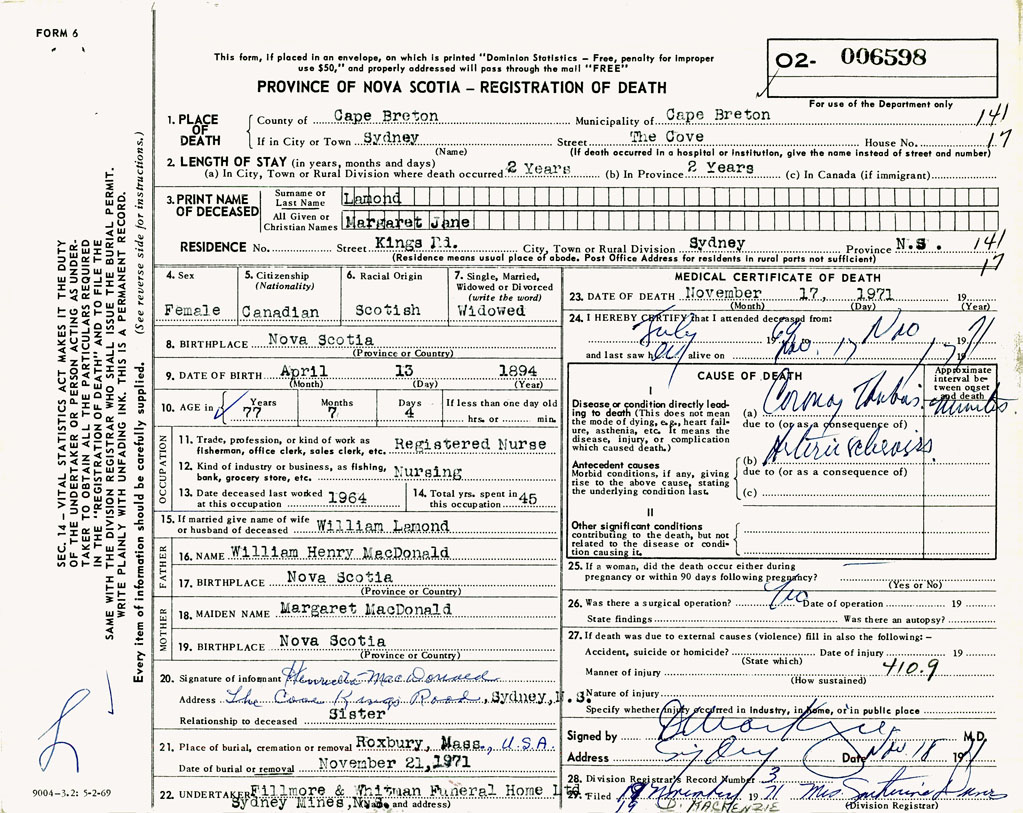 FORM 6
This form, if placed in an envelope, on which is printed "Dominion Statistics – Free, penalty for improper
use $50," and properly addressed will pass through the mail "FREE"
PROVINCE OF NOVA SCOTIA – REGISTRATION OF DEATH
O2- 006598
For use of the Department only
1. PLACE OF DEATH
County of Cape Breton Municipality of Cape Breton 141
If in City or Town Sydney Street The Cove House No. 17
(Name) (If death occurred in a hospital or institution, give the name instead of street and number)
2. LENGTH OF STAY (in years, months and days)
(a) In City, Town or Rural Division where death occurred 2 Years (b) In Province 2 Years (c) In Canada (if immigrant)
3. PRINT NAME OF DECEASED
Surname or Last Name Lamond
All Given or Christian Names Margaret Jane
RESIDENCE No. Street Kings Rd. City, Town or Rural Division Sydney Province N.S. 141
(Residence means usual place of abode. Post Office Address for residents in rural parts not sufficient) 17
4. Sex
Female
5. Citizenship
(Nationality)
Canadian
6. Racial Origin
Scotish
7. Single, Married,
Widowed or Divorced
(write the word)
Widowed
8. BIRTHPLACE Nova Scotia
(Province or Country)
9. DATE OF BIRTH April 13 1894
(Month) (Day) (Year)
10. AGE in Years Months Days If less than one day old
77 7 4 hrs. or min.
OCCUPATION
11. Trade, profession, or kind of work as
fisherman, office clerk, sales clerk, etc. Registered Nurse
12. Kind of industry or business, as fishing,
bank, grocery store, etc. Nursing
13. Date deceased last worked
at this occupation 1964
14. Total yrs. spent in
this occupation 45
15. If married give name of wife
or husband of deceased William Lamond
FATHER
16. NAME William Henry MacDonald
17. BIRTHPLACE Nova Scotia
(Province or Country)
MOTHER
18. MAIDEN NAME Margaret MacDonald
19. BIRTHPLACE Nova Scotia
(Province or Country)
20. Signature of informant Henrietta MacDonald
Address The Cove Kings Road, Sydney, N.S.
Relationship to deceased Sister
21. Place of burial, cremation or removal Roxbury, Mass., U.S.A.
Date of burial or removal November 21, 1971
22. UNDERTAKER Fillmore & Whitman Funeral Home Ltd
Sydney Mines, N.S. and address)
MEDICAL CERTIFICATE OF DEATH
23. DATE OF DEATH November 17, 1971 19
(Month) (Day) (Year)
24. I HEREBY CERTIFY that I attended deceased from:
July 1969 Nov 17 71
and last saw h alive on Nov. 17 1971
CAUSE OF DEATH
Approximate
interval be-
tween onset
and death
I
Disease or condition directly lead-
ing to death (This does not mean
the mode of dying, e.g., heart fail-
ure, asthenia, etc. It means the
disease, injury, or complication
which caused death.)
(a) Coronary minutes
due to (or as a consequence of)
Antecedent causes
Morbid conditions, if any, giving
rise to the above cause, stating
the underlying condition last.
(b) Arteriosclerosis
due to (or as a consequence of)
(c)
II
Other significant conditions
contributing to the death, but not
related to the disease or condi-
tion causing it.
25. If a woman, did the death occur either during
pregnancy or within 90 days following pregnancy?
(Yes or No)
26. Was there a surgical operation? No Date of operation 19
State findings Was there an autopsy?
27. If death was due to external causes (violence) fill in also the following: –
Accident, suicide or homicide? Date of injury 19
(State which)
Manner of injury 410.9
(How sustained)
Nature of injury
Specify whether injury occurred in industry, in home, or in public place
Signed by M.D.
Address Sydney Date Nov. 18 1971
28. Division Registrar's Record Number 3
29. Filed 19 November 1971 Mrs.
19 D. MACKENZIE (Division Registrar)
SEC. 14 – VITAL STATISTICS ACT MAKES IT THE DUTY
OF THE UNDERTAKER OR PERSON ACTING AS UNDER-
TAKER TO OBTAIN ALL THE PARTICULARS REQUIRED
IN THE "REGISTRATION OF DEATH" AND TO FILE THE
SAME WITH THE DIVISION REGISTRAR WHO SHALL ISSUE THE BURIAL PERMIT.
WRITE PLAINLY WITH UNFADING INK. THIS IS A PERMANENT RECORD.
Every item of information should be carefully supplied. (See reverse side for instructions.)
9004-3.2: 5-2-69